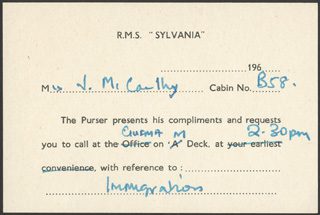 R.M.S. "SYLVANIA"
196
Mrs J. McCarthy Cabin No. B58.
The Purser presents his compliments and requests
CINEMA M 2.30pm
you to call at the Office on 'A' Deck, at your earliest
convenience, with reference to :
Immigration